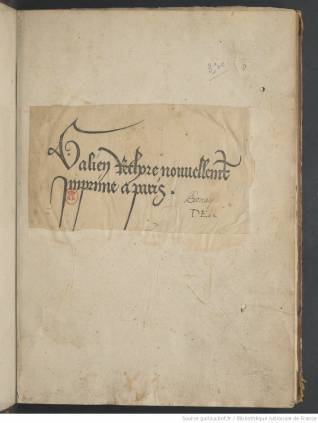 Galien Rethore nouuellemēt
Imprime a paris.
Source gallica.bnf.fr / Bibliothèque nationale de France